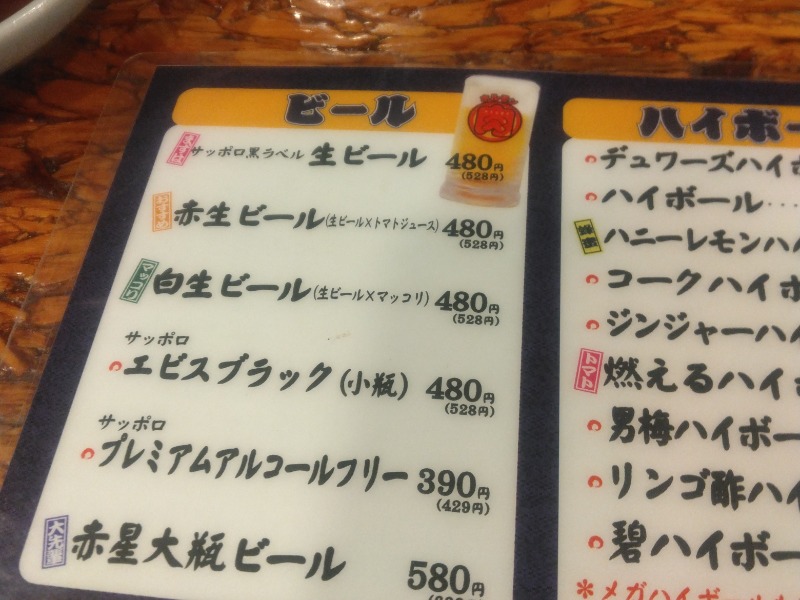 ビール
サッポロ黒ラベル 生ビール 480円
(528円)
おすすめ 赤生ビール(生ビール×トマトジュース) 480円
(528円)
マッコリ 白生ビール(生ビール×マッコリ) 480円
(528円)
サッポロ
エビスブラック(小瓶) 480円
(528円)
サッポロ
プレミアムアルコールフリー 390円
(429円)
赤星大瓶ビール 580円
ハイボー
デュワーズハイボ
ハイボール‥‥
ハニーレモンハイ
コークハイボ
ジンジャーハイ
トマト 燃えるハイボ
男梅ハイボー
リンゴ酢ハイ
碧ハイボー
*メガハイボール